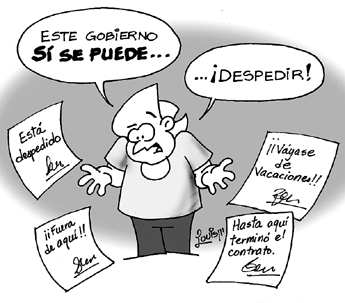 ESTE GOBIERNO
SÍ SE PUEDE...
...¡DESPEDIR!
Está
despedido
¡¡Váyase
de
Vacaciones!!
¡¡Fuera
de aquí!!
Hasta aquí
terminó el
contrato.